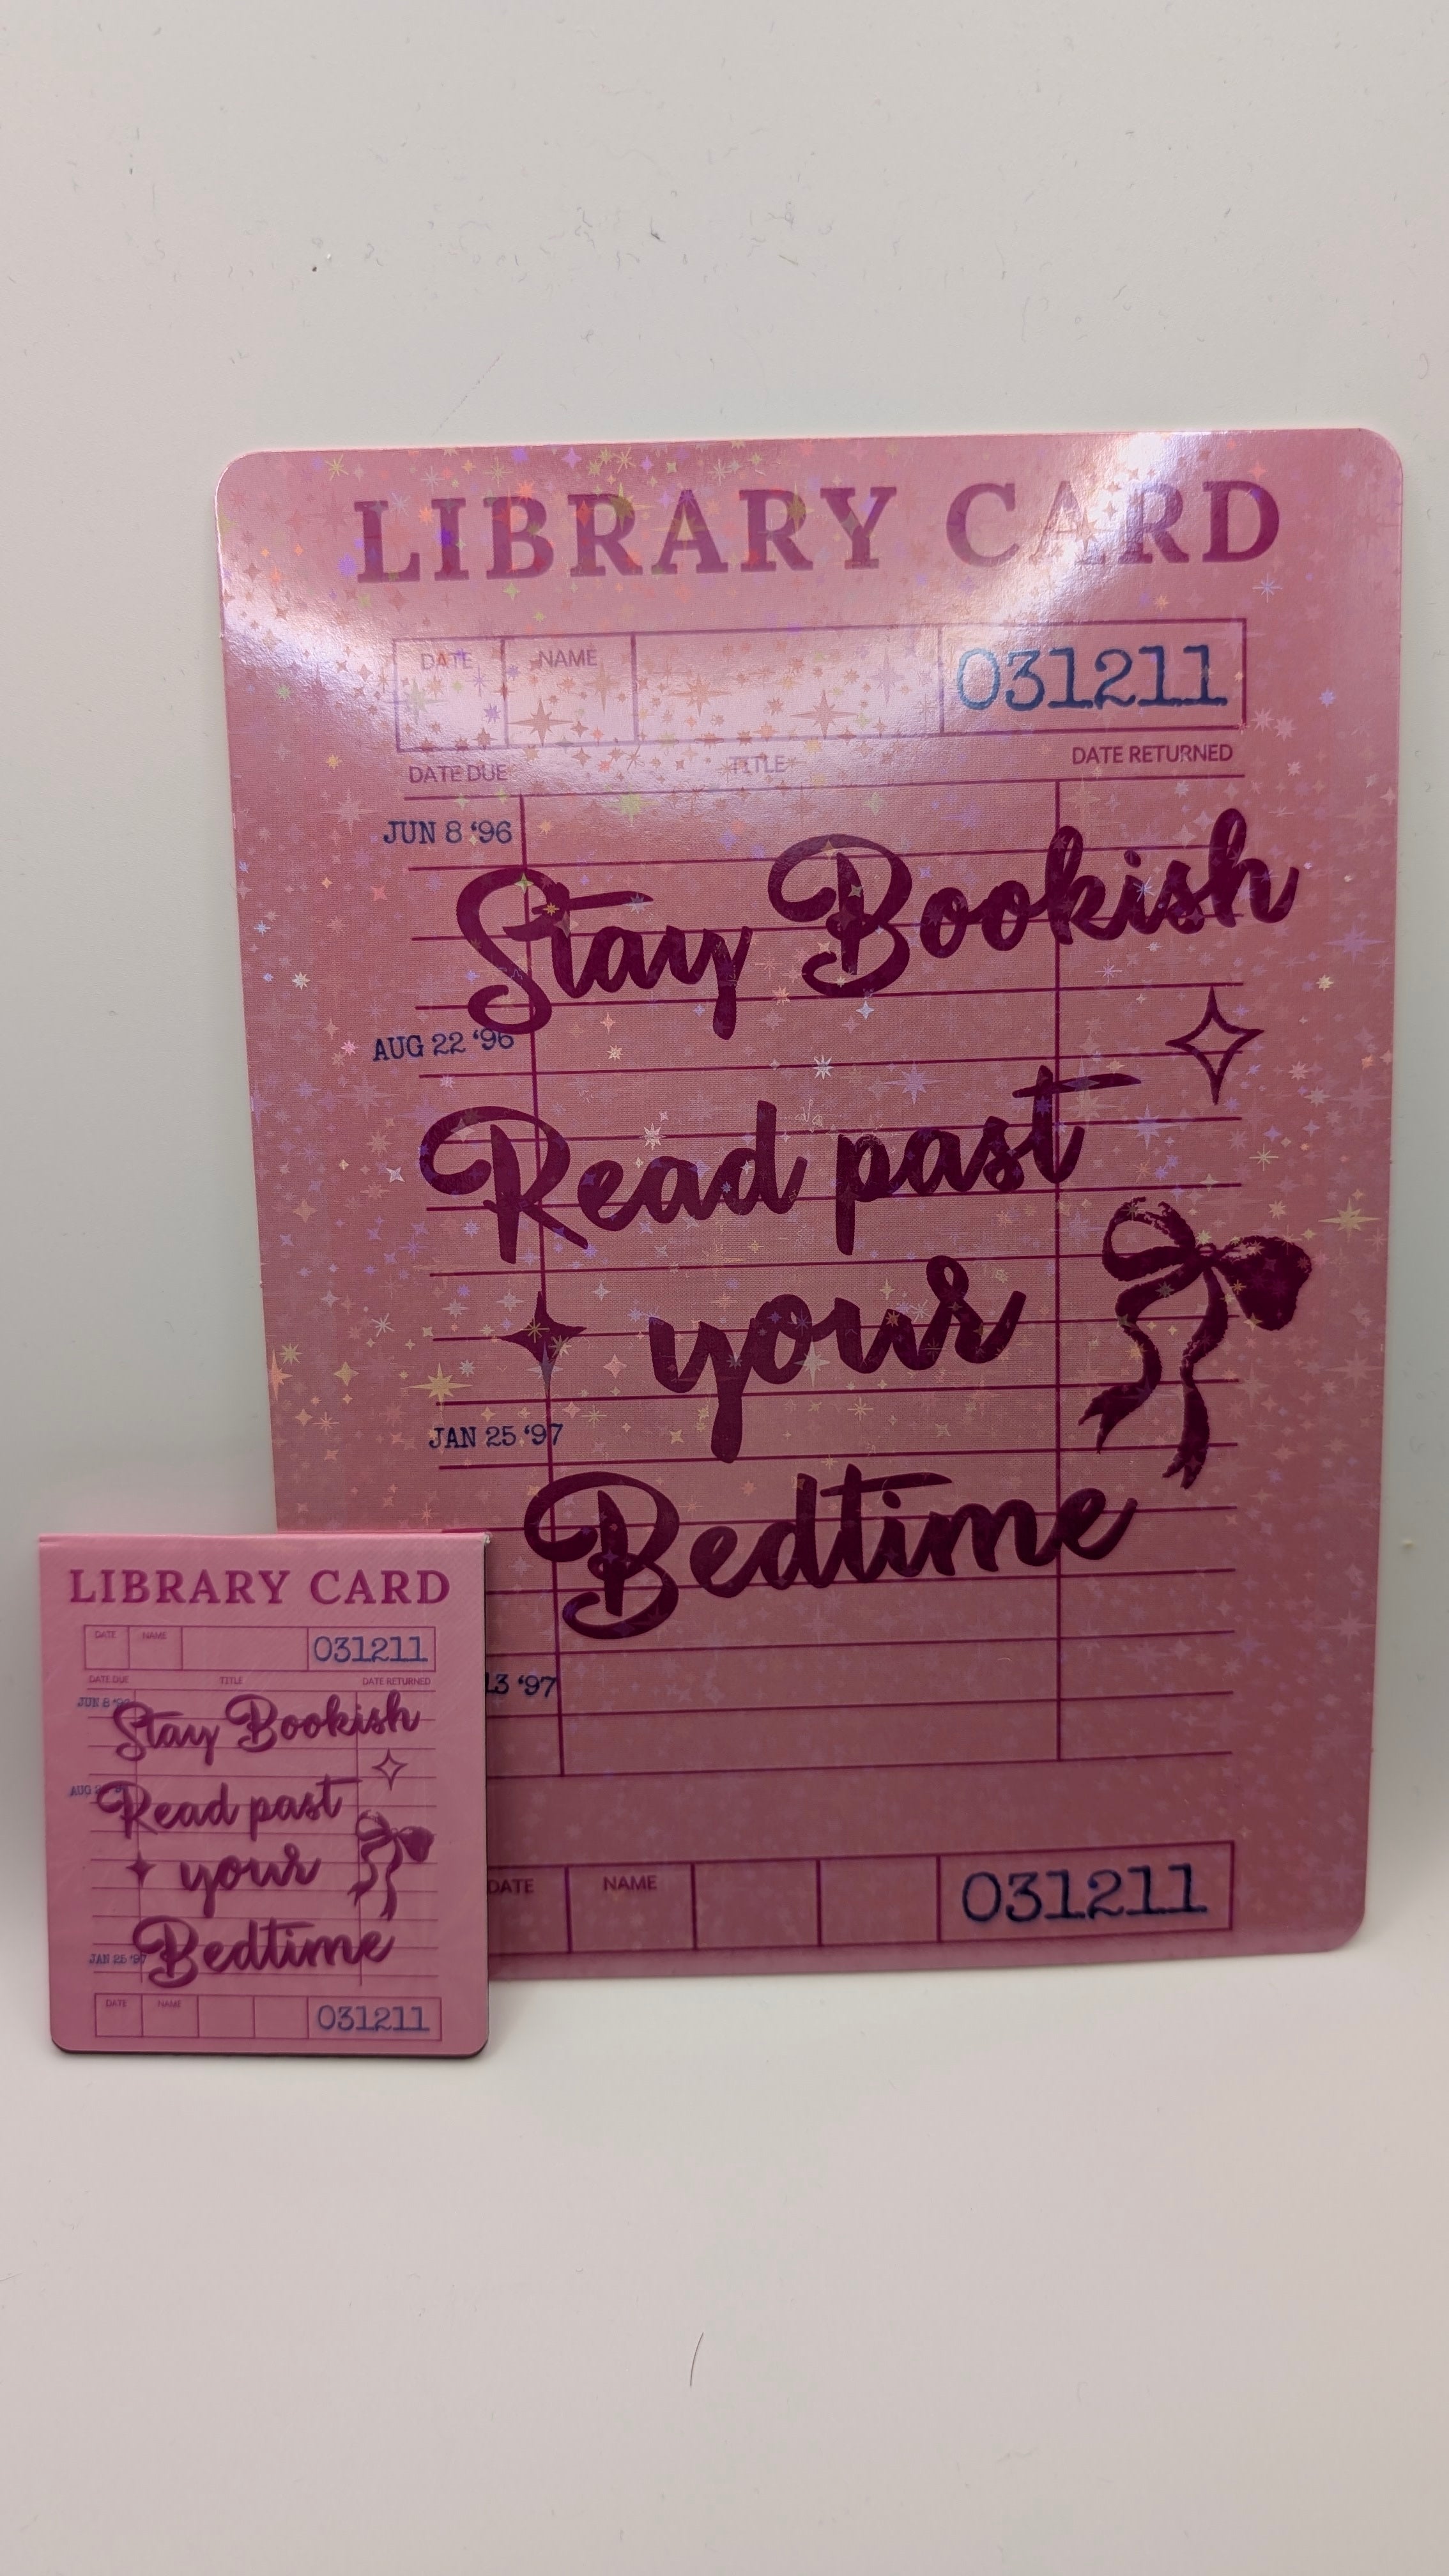 LIBRARY CARD
DATE NAME 031211
DATE DUE TITLE DATE RETURNED
JUN 8 '96
Stay Bookish
AUG 22 '96
Read past
your
JAN 25 '97
Bedtime
13 '97
DATE NAME 031211
LIBRARY CARD
DATE NAME 031211
DATE DUE TITLE DATE RETURNED
JUN 8 '96
Stay Bookish
AUG
Read past
your
Bedtime
JAN 25 '97
DATE NAME 031211